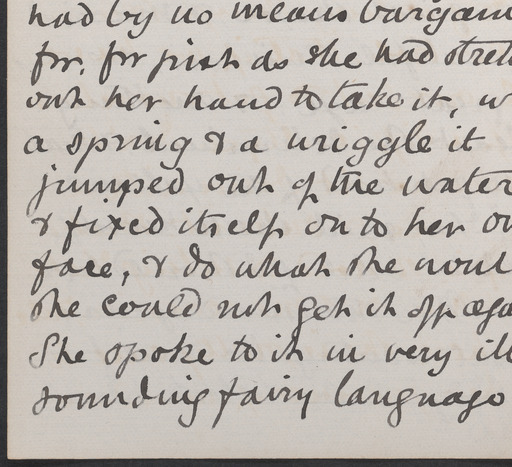 had by no means bargain
for. for just as she had stret
out her hand to take it, w
a spring & a wriggle it
jumped out of the water
& fixed itself on to her ow
face, & do what she woul
she could not get it off aga
She spoke to it in very ill
sounding fairy language